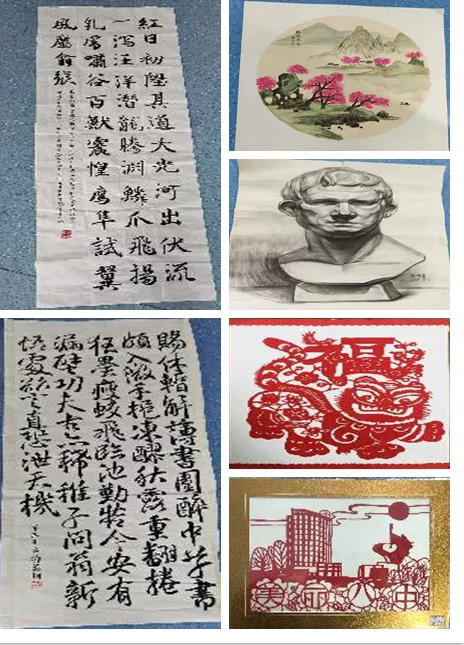 紅日初陞其道大光河出伏流
一瀉汪洋潛龍騰淵鱗爪飛揚
乳虎嘯谷百獸震惶鷹隼試翼
風塵翕張
賜休暫解簿書圍醉中草書
頗入微手挹凍醪秋露重翻捲
狂墨瘦蛟飛臨池勤苦今安有
漏壁功夫古亦稀稚子問翁新
悟處欲言直恐泄天機
福
美丽八中